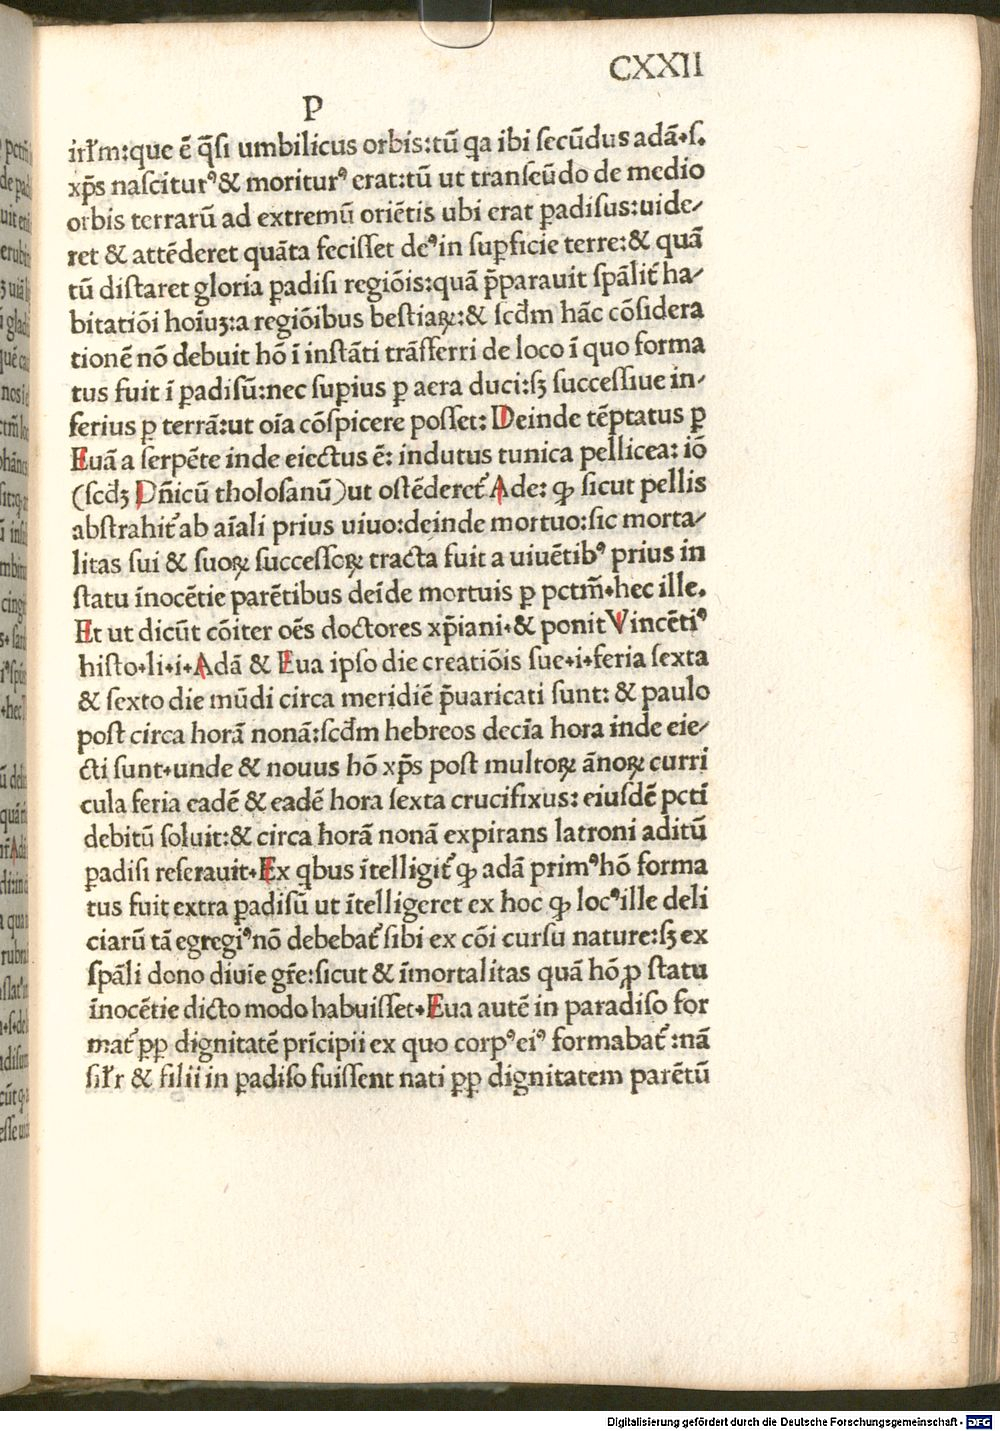 CXXII
P
irłm:que ē q̄si umbilicus orbis:tū qa ibi secūdus adā·s.
xp̄s nasciturꝰ & moriturꝰ erat:tū ut transeūdo de medio
orbis terrarū ad extremū oriētis ubi erat ꝑadisus:uide⸗
ret & attēderet quāta fecisset deꝰ in suꝑficie terre:& quā
tū distaret gloria ꝑadisi regiōis:quā p̄parauit sp̄alit᷑ ha⸗
bitatiōi hoīuꝫ:a regiōibus bestiaꝝ:& scd̄m hāc cōsidera
tionē nō debuit hō ī instāti trāsferri de loco ī quo forma
tus fuit ī ꝑadisū:nec suꝑius ꝑ aera duci:sꝫ successiue in⸗
ferius ꝑ terrā:ut oīa cōspicere posset: Deinde tēptatus ꝑ
Euā a serpēte inde eiectus ē: indutus tunica pellicea: iō
(scdꝫ Dn̄icū tholosanū)ut ostēderet᷑ Ade: ꝙ sicut pellis
abstrahit᷑ ab aīali prius uiuo:deinde mortuo:sic morta⸗
litas sui & suoꝝ successoꝝ tracta fuit a uiuētibꝰ prius in
statu īnocētie parētibus deīde mortuis ꝑ pctm̄·hec ille.
Et ut dicūt cōiter oēs doctores xp̄iani·& ponit Vincētiꝰ
histo·li·i·Adā & Eua ipso die creatiōis sue·i·feria sexta
& sexto die mūdi circa meridiē p̄uaricati sunt: & paulo
post circa horā nonā:scd̄m hebreos decīa hora inde eie⸗
cti sunt·unde & nouus hō xp̄s post multoꝝ ānoꝝ curri
cula feria eadē & eadē hora sexta crucifixus: eiusdē pcti
debitū soluit:& circa horā nonā expirans latroni aditū
ꝑadisi reserauit·Ex qbus ītelligit᷑ ꝙ adā primꝰ hō forma
tus fuit extra ꝑadisū ut ītelligeret ex hoc ꝙ locꝰ ille deli
ciarū tā egregiꝰ nō debebat᷑ sibi ex cōi cursu nature:sꝫ ex
sp̄ali dono diuīe gr̄e:sicut & īmortalitas quā hō ꝓ statu
īnocētie dicto modo habuisset·Eua autē in paradiso for
mat᷑ ꝓp dignitatē prīcipii ex quo corpꝰ eiꝰ formabat᷑ :nā
siłr & filii in ꝑadiso fuissent nati ꝓp dignitatem parētū
Digitalisierung gefördert durch die Deutsche Forschungsgemeinschaft - DFG